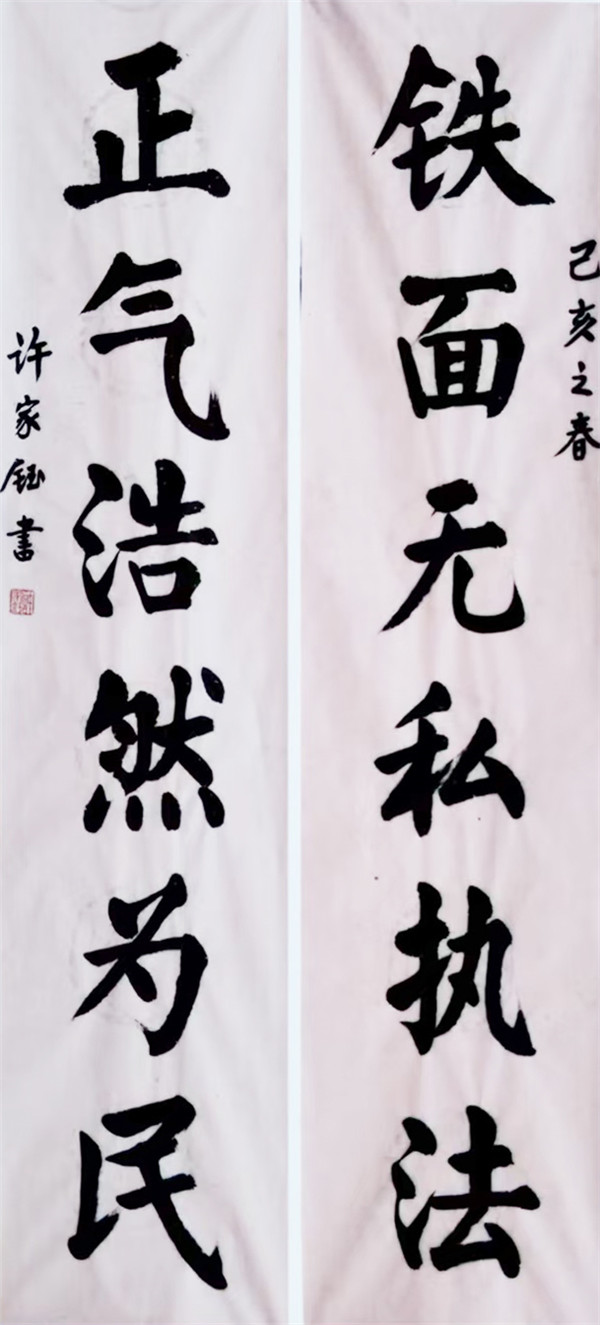 己亥之春
铁面无私执法
正气浩然为民
许家钰书